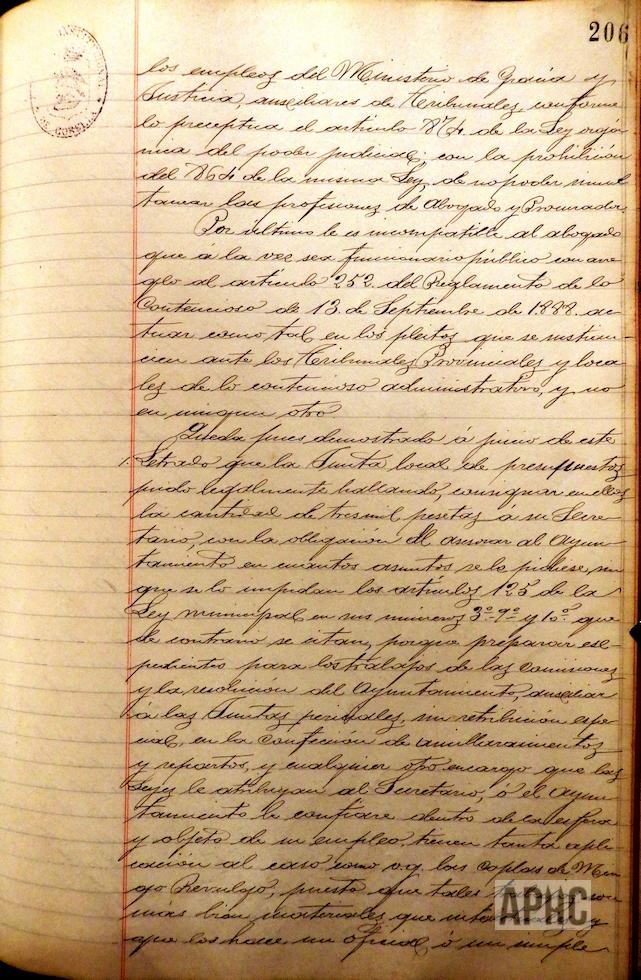 206
los empleos del Ministerio de Gracia y
Justicia, auxiliares de Tribunales, conforme
lo preceptua el artículo 874 de la Ley orgá-
nica del poder judicial; con la prohibición
del 864 de la misma Ley, de no poder simul
tanear las profesiones de Abogado y Procurador.
Por último le es incompatible al abogado
que á la vez sea funcionario público con arre
glo al artículo 252 del Reglamento de lo
Contencioso de 13 de Septiembre de 1888 ac-
tuar como tal en los pleitos que se sustan-
cien ante los Tribunales Provinciales y loca-
les de lo contencioso administrativo, y no
en ningun otro
Queda pues demostrado á juicio de este
Letrado que la Junta local de presupuestos
pudo legalmente hablando, consignar en ellos
la cantidad de tres mil pesetas á su Secre-
tario, con la obligación de asesorar al Ayun-
tamiento en cuantos asuntos se lo pidiese, sin
que se lo impidan los artículos 125 de la
Ley municipal en sus números 3º 9º y 10º que
de contrario se citan, porque preparar es
pedientes para los trabajos de las Comisiones
y la resolución del Ayuntamiento, auxiliar
á las Juntas periciales, sin retribución espe-
cial, en la confección de amillaramientos
y repartos, y cualquier otro encargo que las
Leyes le atribuyan al Secretario, ó el Ayun-
tamiento le confiare dentro de la esfera
y objeto de su empleo, tienen tanta apli-
cación al caso como v.g. las coplas de Min
go Revulgo, puesto que tales son
más bien materiales que y
que los hace un oficial ó un simple
APHC